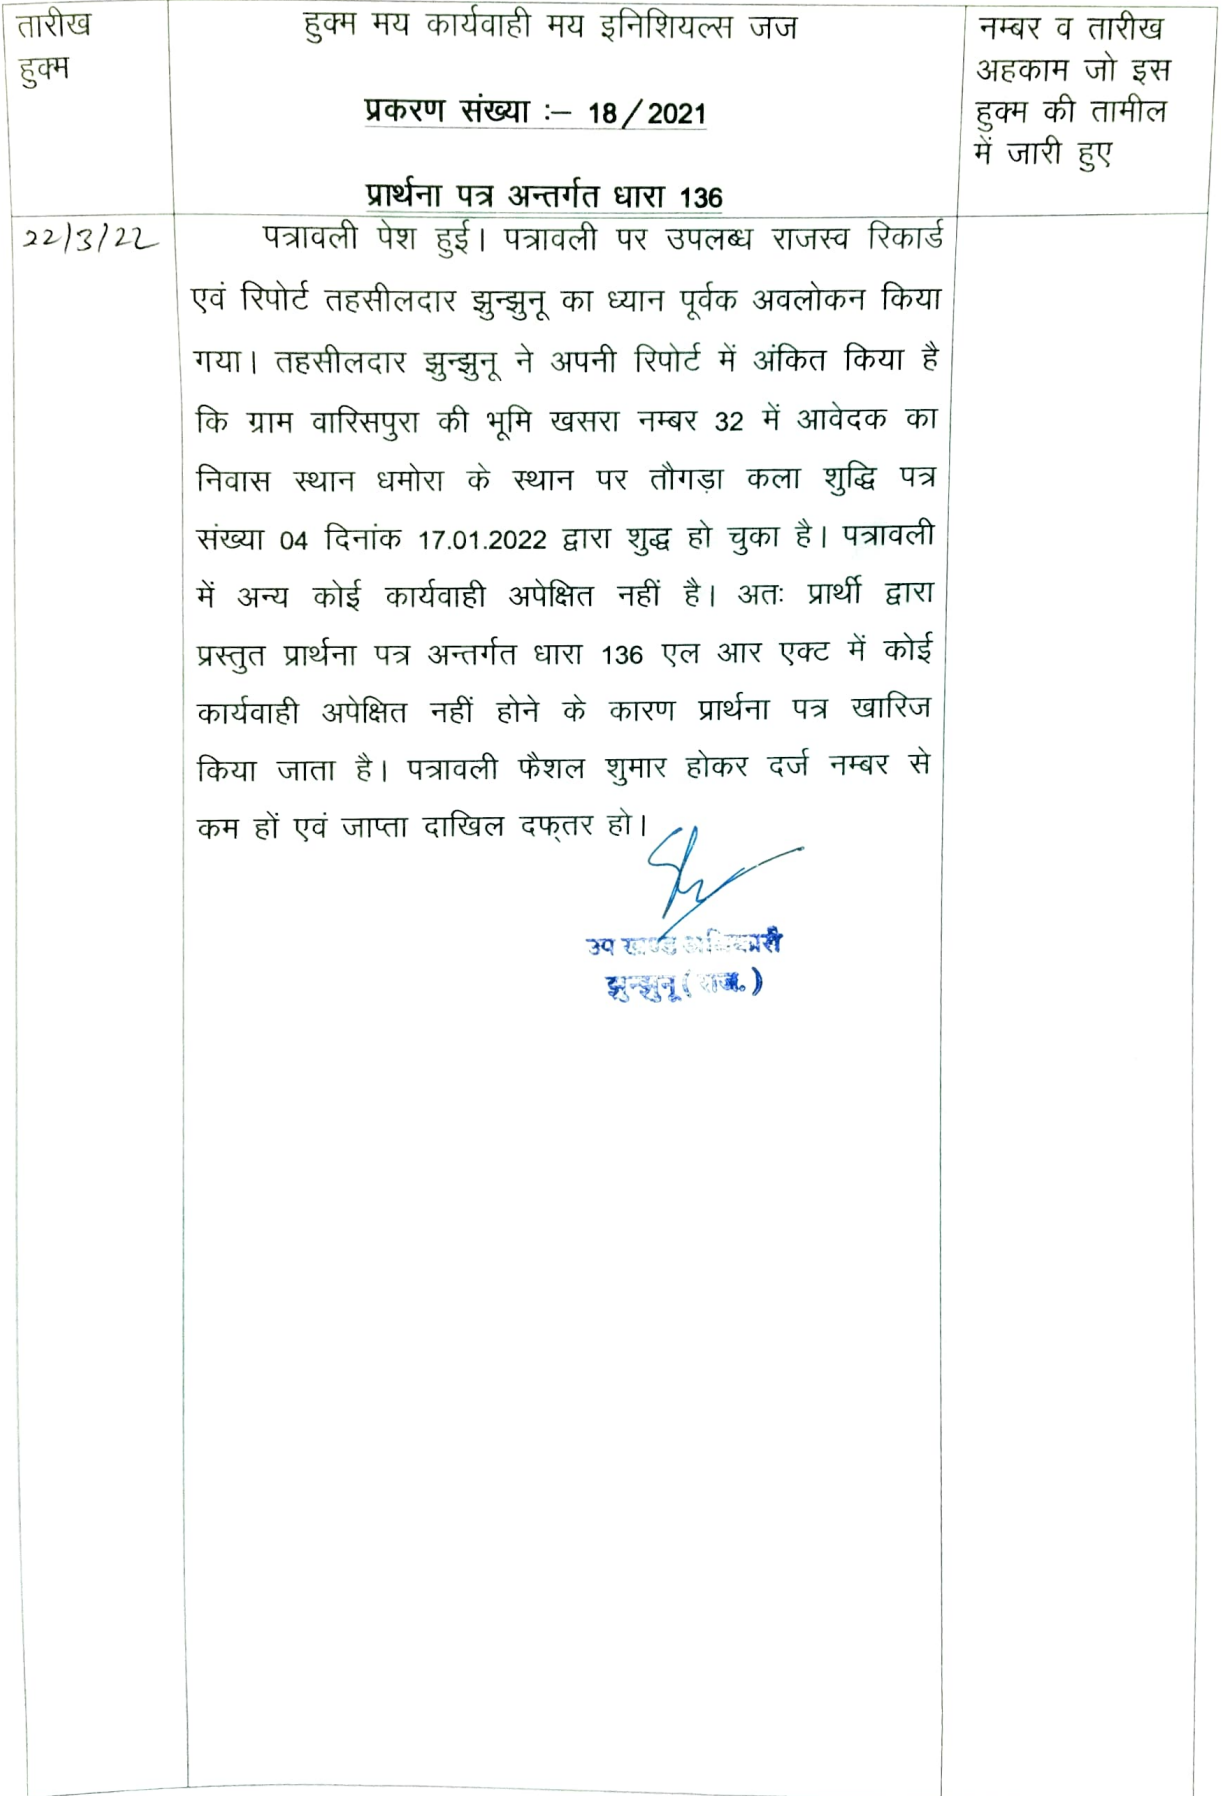 तारीख
हुक्म
हुक्म मय कार्यवाही मय इनिशियल्स जज
प्रकरण संख्या :– 18/2021
प्रार्थना पत्र अन्तर्गत धारा 136
नम्बर व तारीख
अहकाम जो इस
हुक्म की तामील
में जारी हुए
22/3/22
पत्रावली पेश हुई। पत्रावली पर उपलब्ध राजस्व रिकार्ड
एवं रिपोर्ट तहसीलदार झुन्झुनू का ध्यान पूर्वक अवलोकन किया
गया। तहसीलदार झुन्झुनू ने अपनी रिपोर्ट में अंकित किया है
कि ग्राम वारिसपुरा की भूमि खसरा नम्बर 32 में आवेदक का
निवास स्थान धमोरा के स्थान पर तौगड़ा कला शुद्धि पत्र
संख्या 04 दिनांक 17.01.2022 द्वारा शुद्ध हो चुका है। पत्रावली
में अन्य कोई कार्यवाही अपेक्षित नहीं है। अतः प्रार्थी द्वारा
प्रस्तुत प्रार्थना पत्र अन्तर्गत धारा 136 एल आर एक्ट में कोई
कार्यवाही अपेक्षित नहीं होने के कारण प्रार्थना पत्र खारिज
किया जाता है। पत्रावली फैशल शुमार होकर दर्ज नम्बर से
कम हों एवं जाप्ता दाखिल दफ्तर हो।
उप खण्ड अधिकारी
झुन्झुनू (राज.)